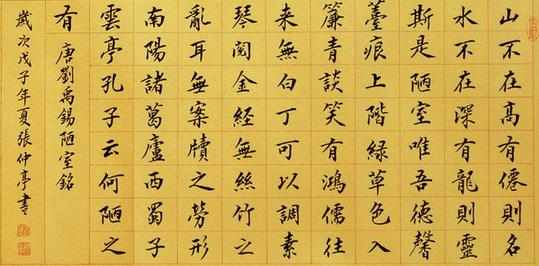 山不在高有僊則名
水不在深有龍則靈
斯是陋室唯吾德馨
薹痕上階緑草色入
簾青談笑有鴻儒往
来無白丁可以調素
琴閲金經無絲竹之
亂耳無案牘之勞形
南陽諸葛廬西蜀子
雲亭孔子云何陋之
有
唐劉禹錫陋室銘
歲次戊子年夏張仲亭書